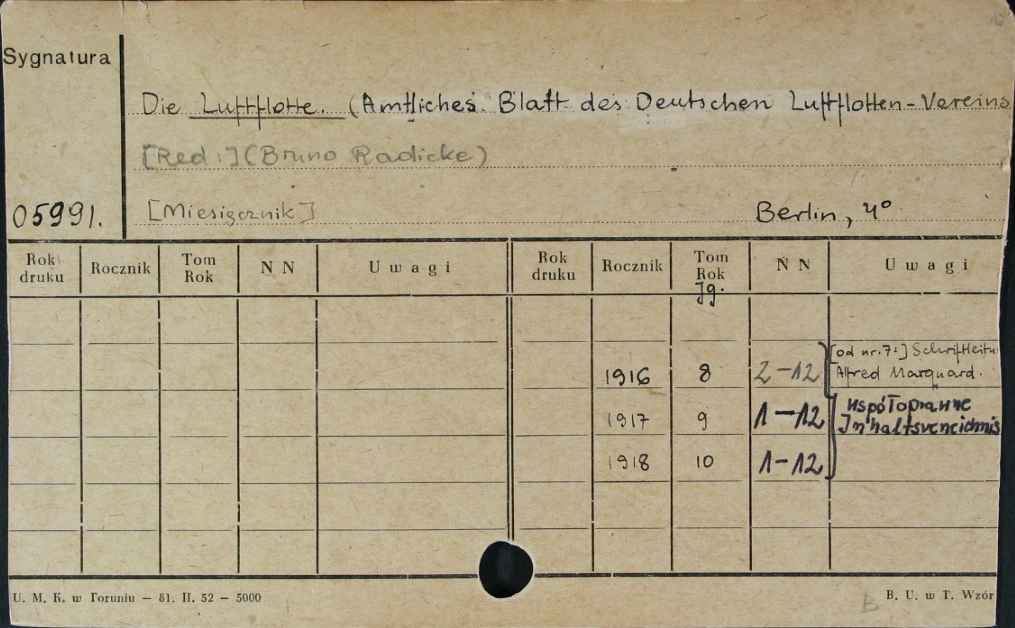 Sygnatura
Die Luftflotte. (Amtliches Blatt des Deutschen Luftflotten-Vereins
[Red:] (Bruno Radicke)
05991. [Miesięcznik] Berlin, 4°
Rok druku Rocznik Tom Rok N N Uwagi Rok druku Rocznik Tom Rok Jg. N N Uwagi
[od nr. 7:] Schriftleitu
1916 8 2-12 Alfred Marquard.
współoprawne
1917 9 1-12 Inhaltsverzeichnis
1918 10 1-12
U. M. K. w Toruniu — 81. II. 52 — 5000 B B. U. w T. Wzór